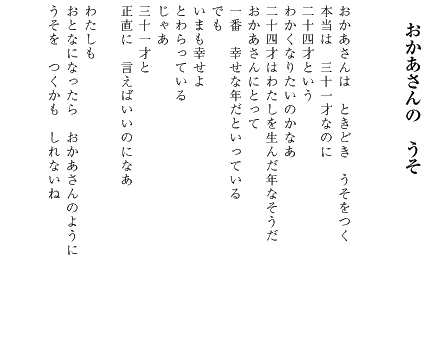 おかあさんの　うそ
おかあさんは　ときどき　うそをつく
本当は　三十一才なのに
二十四才という
わかくなりたいのかなあ
二十四才はわたしを生んだ年なそうだ
おかあさんにとって
一番　幸せな年だといっている
でも
いまも幸せよ
とわらっている
じゃあ
三十一才と
正直に　言えばいいのになあ
わたしも
おとなになったら　おかあさんのように
うそを　つくかも　しれないね